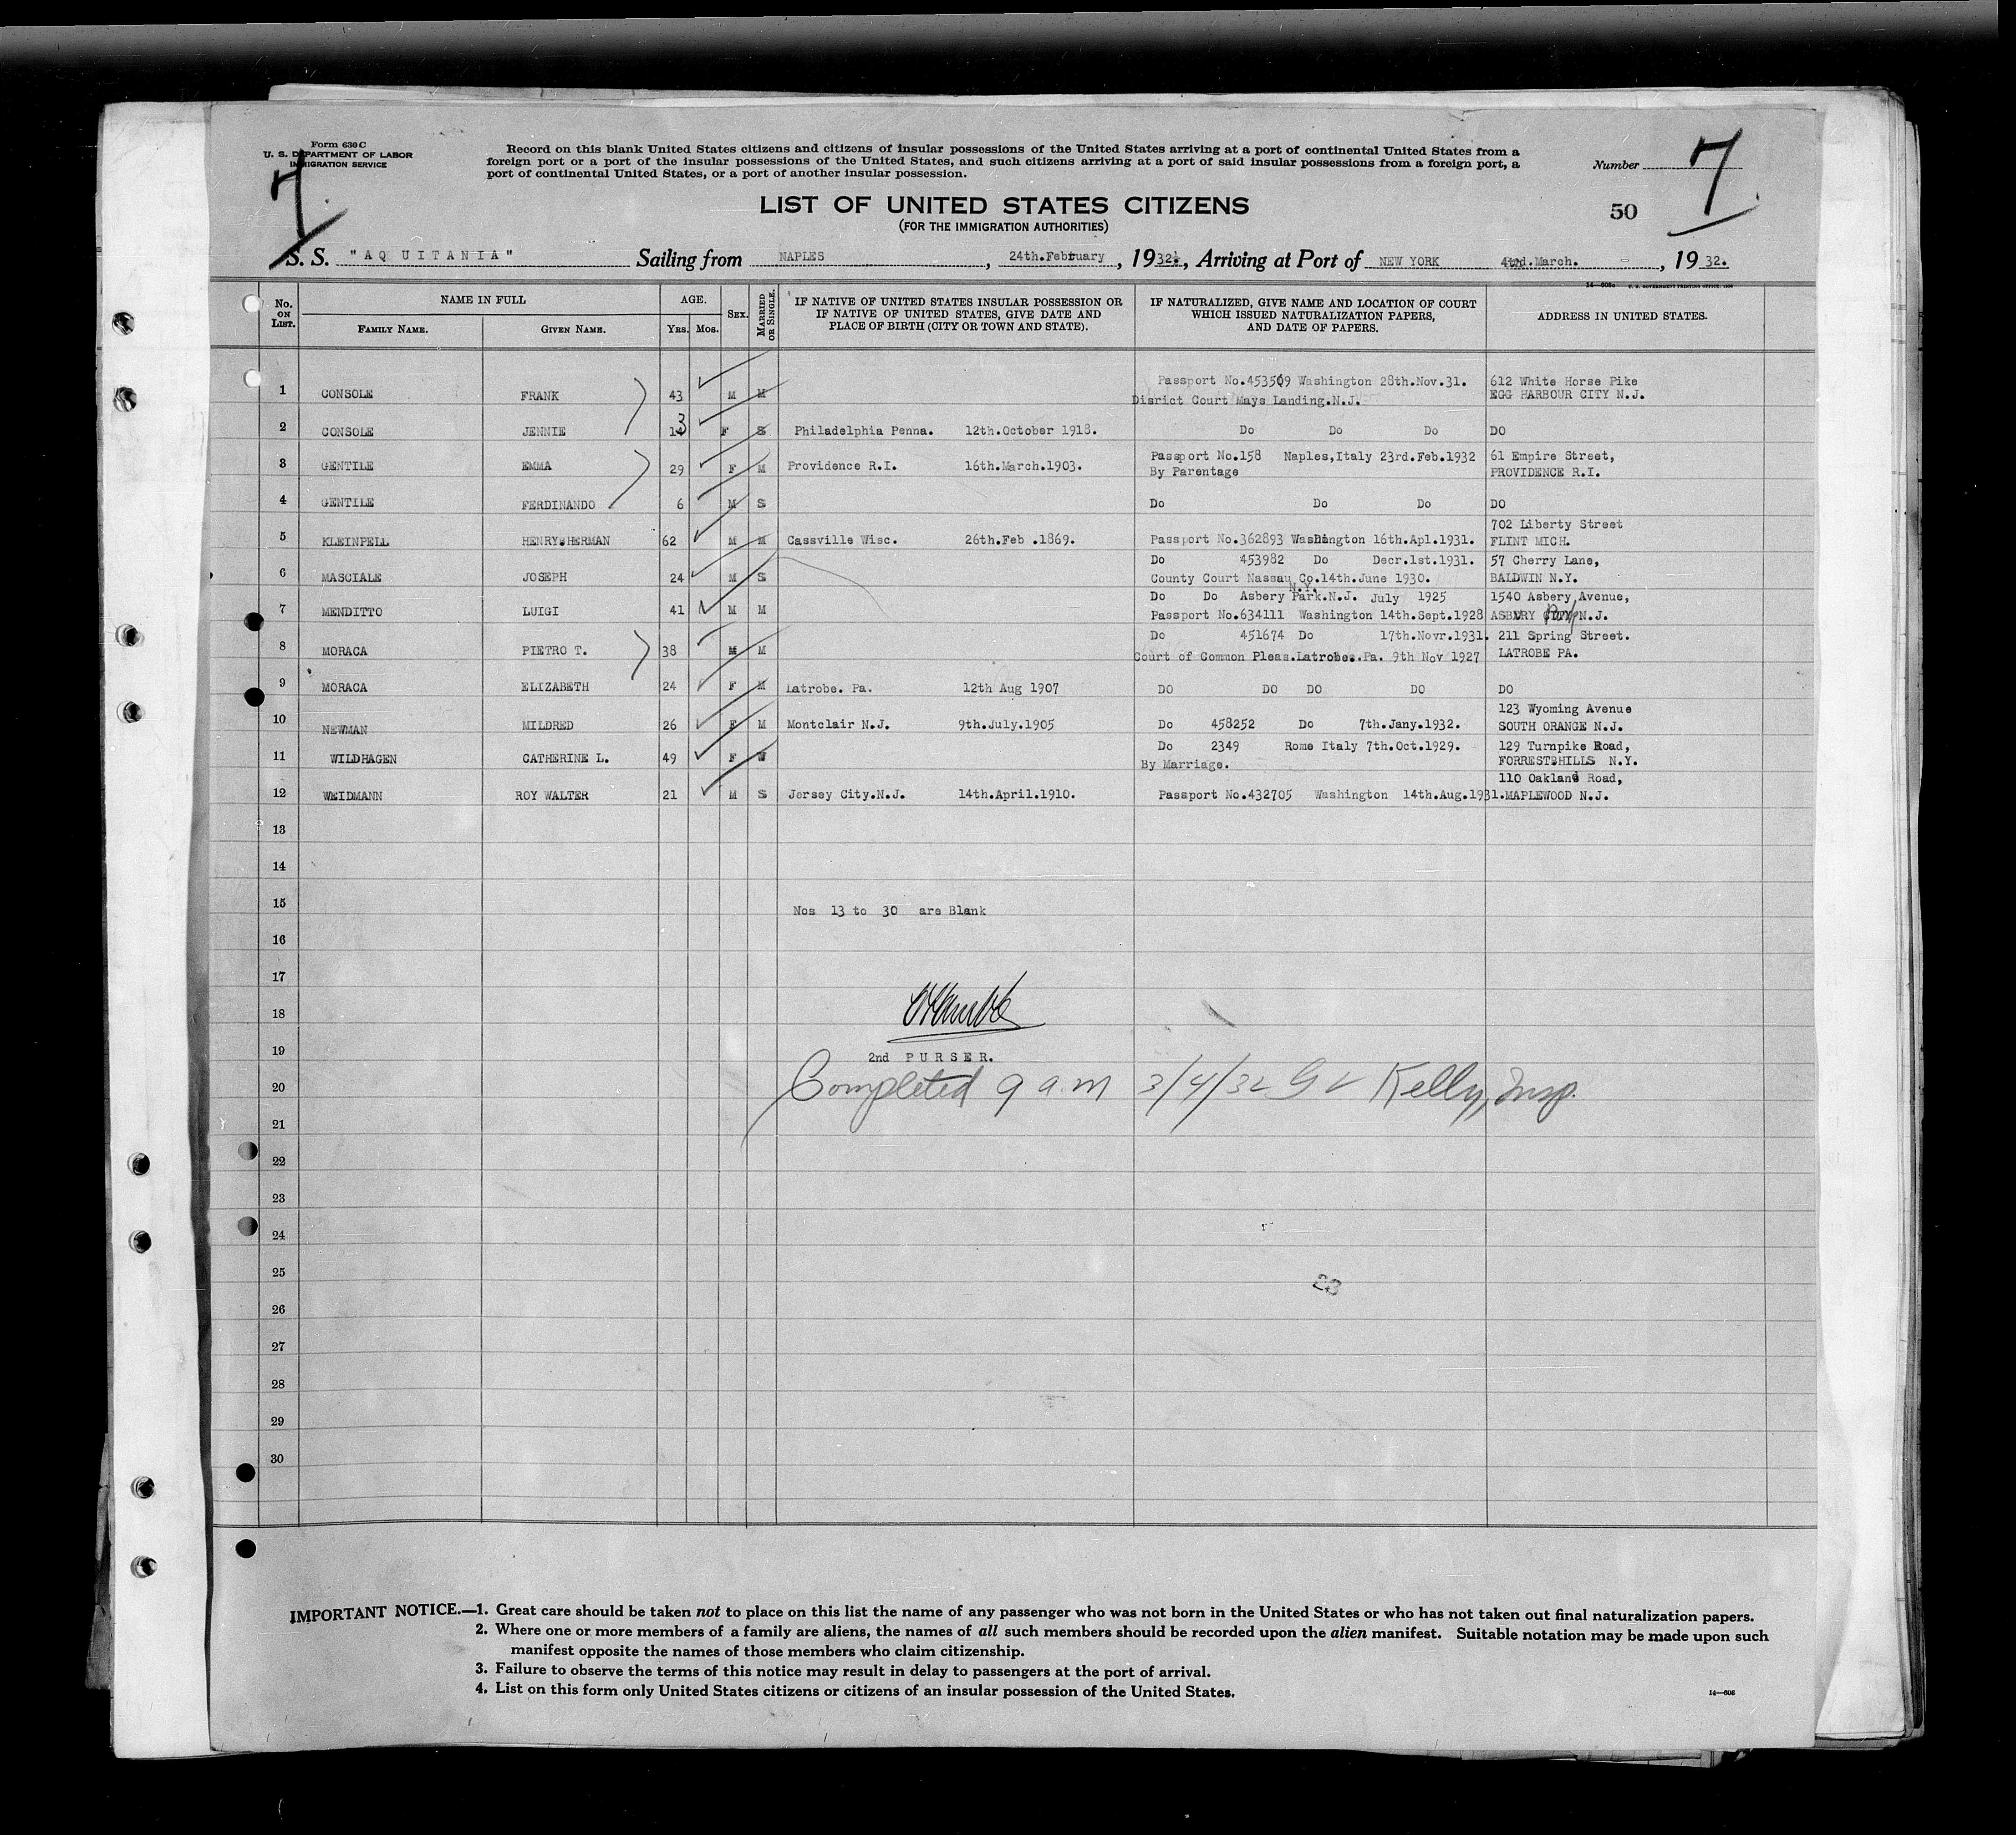 Form 630 C
U. S. DEPARTMENT OF LABOR
IMMIGRATION SERVICE
7
Record on this blank United States citizens and citizens of insular possessions of the United States arriving at a port of continental United States from a
foreign port or a port of the insular possessions of the United States, and such citizens arriving at a port of said insular possessions from a foreign port, a
port of continental United States, or a port of another insular possession.
Number 7
LIST OF UNITED STATES CITIZENS
(FOR THE IMMIGRATION AUTHORITIES)
50
S. S. "AQUITANIA" Sailing from NAPLES, 24th.February, 1932., Arriving at Port of NEW YORK March., 1932.
No. ON LIST. NAME IN FULL AGE. SEX. MARRIED OR SINGLE. IF NATIVE OF UNITED STATES INSULAR POSSESSION OR IF NATIVE OF UNITED STATES, GIVE DATE AND PLACE OF BIRTH (CITY OR TOWN AND STATE). IF NATURALIZED, GIVE NAME AND LOCATION OF COURT WHICH ISSUED NATURALIZATION PAPERS, AND DATE OF PAPERS. ADDRESS IN UNITED STATES.
FAMILY NAME. GIVEN NAME. YRS. MOS.
Passport No.453509 Washington 28th.Nov.31. 612 White Horse Pike
1 CONSOLE FRANK 43 M M Disrict Court Mays Landing.N.J. EGG HARBOUR CITY N.J.
2 CONSOLE JENNIE 13 F S Philadelphia Penna. 12th.October 1918. Do Do Do DO
3 GENTILE EMMA 29 F M Providence R.I. 16th.March.1903. Passport No.158 Naples,Italy 23rd.Feb.1932 61 Empire Street,
By Parentage PROVIDENCE R.I.
4 GENTILE FERDINANDO 6 M S Do Do Do DO
702 Liberty Street
5 KLEINPELL HENRY HERMAN 62 M M Cassville Wisc. 26th.Feb .1869. Passport No.362893 Washington 16th.Apl.1931. FLINT MICH.
Do 453982 Do Decr.1st.1931. 57 Cherry Lane,
6 MASCIALE JOSEPH 24 M S County Court Nassau Co.14th.June 1930. BALDWIN N.Y.
N.Y.
Do Do Asbery Park.N.J. July 1925 1540 Asbery Avenue,
7 MENDITTO LUIGI 41 M M Passport No.634111 Washington 14th.Sept.1928 ASBURY Park N.J.
Do 451674 Do 17th.Novr.1931. 211 Spring Street.
8 MORACA PIETRO T. 38 M M Court of Common Pleas.Latrobe..Pa. 9th Nov 1927 LATROBE PA.
9 MORACA ELIZABETH 24 F M Latrobe. Pa. 12th Aug 1907 DO DO DO DO DO
123 Wyoming Avenue
10 NEWMAN MILDRED 26 F M Montclair N.J. 9th.July.1905 Do 458252 Do 7th.Jany.1932. SOUTH ORANGE N.J.
Do 2349 Rome Italy 7th.Oct.1929. 129 Turnpike Road,
11 WILDHAGEN CATHERINE L. 49 F W By Marriage. FORRESTHILLS N.Y.
110 Oakland Road,
12 WEIDMANN ROY WALTER 21 M S Jersey City.N.J. 14th.April.1910. Passport No.432705 Washington 14th.Aug.1931. MAPLEWOOD N.J.
13
14
15 Nos 13 to 30 are Blank
16
17
18
19 2nd PURSER.
20 Completed 9 a.m 3/4/32 G V Kelly, Insp.
21
22
23
24
25
26
27
28
29
30
IMPORTANT NOTICE.—1. Great care should be taken not to place on this list the name of any passenger who was not born in the United States or who has not taken out final naturalization papers.
2. Where one or more members of a family are aliens, the names of all such members should be recorded upon the alien manifest. Suitable notation may be made upon such
manifest opposite the names of those members who claim citizenship.
3. Failure to observe the terms of this notice may result in delay to passengers at the port of arrival.
4. List on this form only United States citizens or citizens of an insular possession of the United States.
14—606